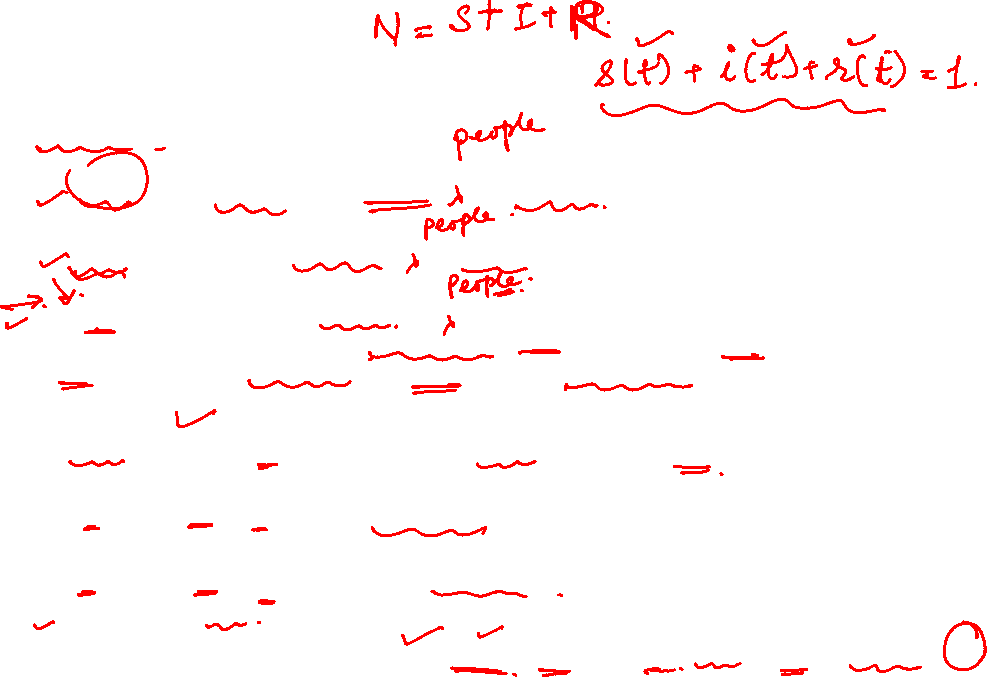 N = S + I + R.
s(t) + i(t) + r(t) = 1.
people
people.
people.